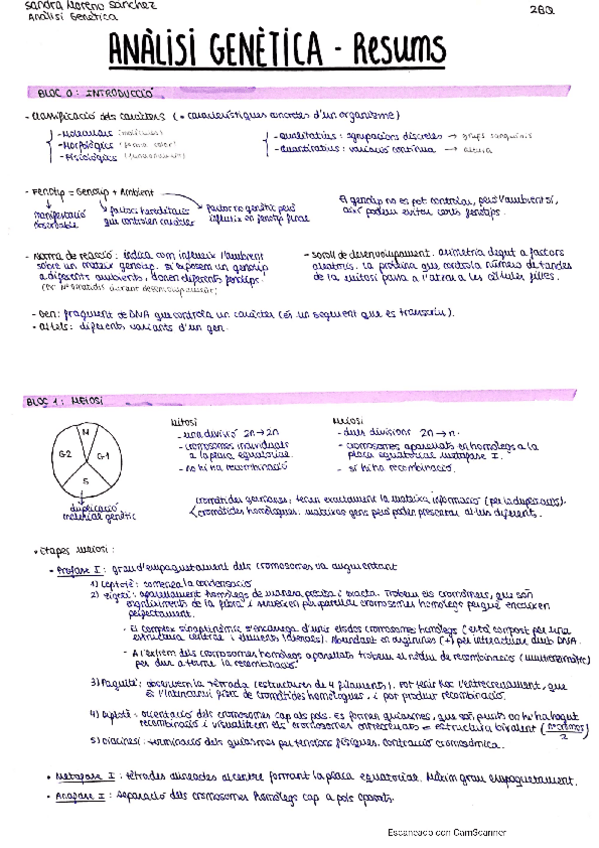 Sandra Moreno Sánchez
Anàlisi Genètica
2BQ
ANÀLISI GENÈTICA - Resums
BLOC 0: INTRODUCCIÓ
- Classificació dels caràcters (= característiques concretes d'un organisme)
- Moleculars (molècules)
- Morfològics (forma, color)
- Fisiològics
- qualitatius: agrupacions discretes → grups sanguinis
- quantitatius: variació contínua → altura
- Fenotip = Genotip + Ambient
manifestació
factors hereditaris
que controlen caràcter
factor no genètic pot
influir en fenotip final
El genotip no es pot controlar, però l'ambient sí,
així podem evitar certs fenotips.
- Norma de reacció: indica com influeix l'ambient
sobre un mateix genotip. Si exposem un genotip
a diferents ambients, donen diferents fenotips.
- soroll de desenvolupament: asimetria degut a factors
aleatoris. La proteïna que controla número de tandes
de la mitosi passa a l'atzar a les cèl·lules filles.
- Gen: fragment de DNA que controla un caràcter (és un segment que es transcriu).
- al·lels: diferents variants d'un gen.
BLOC 1: MEIOSI
M
G2
G1
S
duplicació
material genètic
Mitosi
- una divisió 2n → 2n
- cromosomes individuals
a la placa equatorial.
- no hi ha recombinació
Meiosi
- dues divisions 2n → n.
- cromosomes aparellats en homòlegs a la
placa equatorial metafase I.
- sí hi ha recombinació.
cromàtides germanes: tenen exactament la mateixa informació (per la duplicació).
cromàtides homòlogues: mateixos gens però poden presentar al·lels diferents.
• Etapes meiosi:
- Profase I: grau d'empaquetament dels cromosomes va augmentant
1) Leptotè: comença la condensació
2) Zigotè: aparellament homòlegs de manera precisa i exacta. Trobem els cromòmers, que són
engruiximents de la fibra i serveixen per aparellar cromosomes homòlegs perquè encaixen
perfectament.
- El complex sinaptinèmic s'encarrega d'unir els dos cromosomes homòlegs (està compost per una
estructura central i elements laterals). Abundant en arginines (+) per interactuar amb DNA.
- A l'extrem dels cromosomes homòlegs aparellats trobem el nòdul de recombinació
per dur a terme la recombinació.
3) Paquitè: observem la tètrada (estructures de 4 filaments). Pot tenir lloc l'entrecreuament, que
és l'intercanvi físic de cromàtides homòlogues, i pot produir recombinació.
4) Diplotè: orientació dels cromosomes cap als pols. Es formen quiasmes, que són punts on hi ha hagut
recombinació i visualitzem els cromosomes = estructura bivalent
5) Diacinesi: terminació dels quiasmes per tensions físiques. contracció cromosòmica.
• Metafase I: tètrades alineades al centre formant la placa equatorial. Màxim grau empaquetament.
• Anafase I: separació dels cromosomes homòlegs cap a pols oposats.
Escaneado con CamScanner